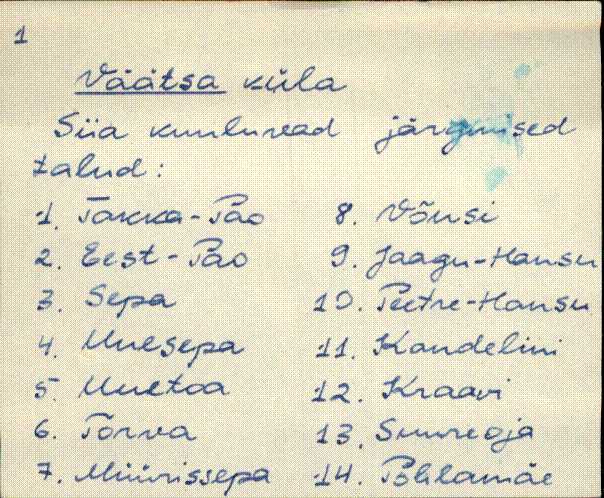 1
Väätsa küla
Siia kuuluvad järgmised
talud:
1. Takka-Pao
2. Eest-Pao
3. Sepa
4. Uuesepa
5. Uuetoa
6. Tõrva
7. Müürissepa
8. Võusi
9. Jaagu-Hansu
10. Peetre-Hansu
11. Kandelini
12. Kraavi
13. Suureoja
14. Põllamäe